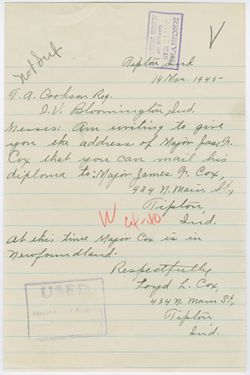 Not Sent
V
Tipton, Ind
14 Mar. 1945-
T. A. Cookson Reg.
I. U. Bloomington, Ind.
Messrs: Am writing to give
you the address of Major Jas. F.
Cox that you can mail his
diploma to: Major James F. Cox,
434 N. Main St,
Tipton,
Ind.
W
At this time Major Cox is in
Newfoundland.
Respectfully
Loyd L. Cox,
434 N. Main St,
Tipton
Ind.
USED